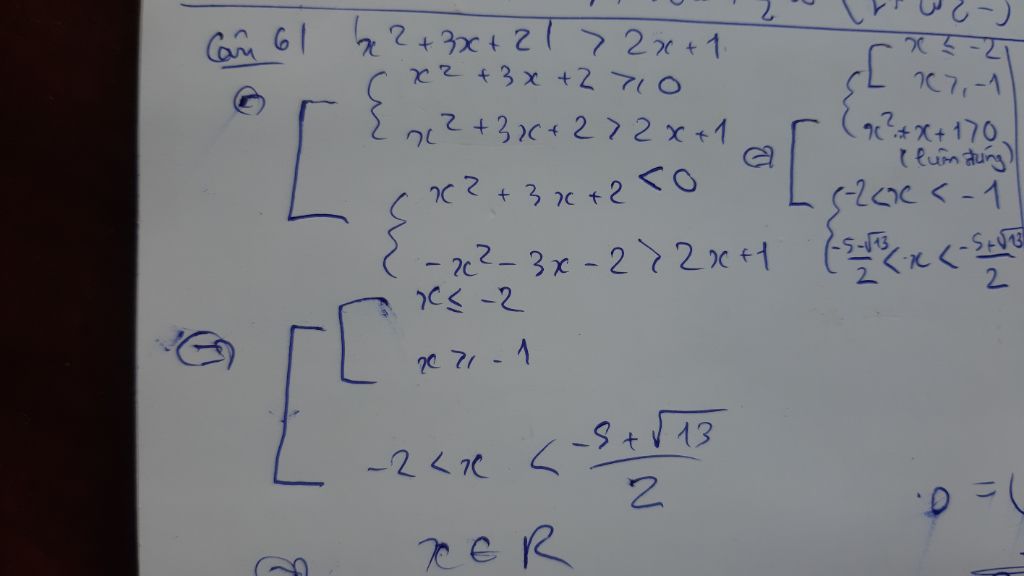 Câu 6| |x² + 3x + 2| > 2x + 1
⇔ [ { x² + 3x + 2 ≥ 0
x² + 3x + 2 > 2x + 1
{ x² + 3x + 2 < 0
-x² - 3x - 2 > 2x + 1
⇔ [ { [ x ≤ -2
x ≥ -1
x² + x + 1 > 0
(luôn đúng)
{ -2 < x < -1
(-5-√13)/2 < x < (-5+√13)/2
⇔ [ [ x ≤ -2
x ≥ -1
-2 < x < (-5+√13)/2
⇔ x ∈ R
.D = (